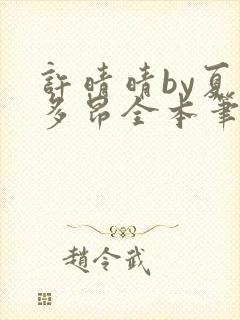 許晴晴by夏
多昂全本筆
趙令武